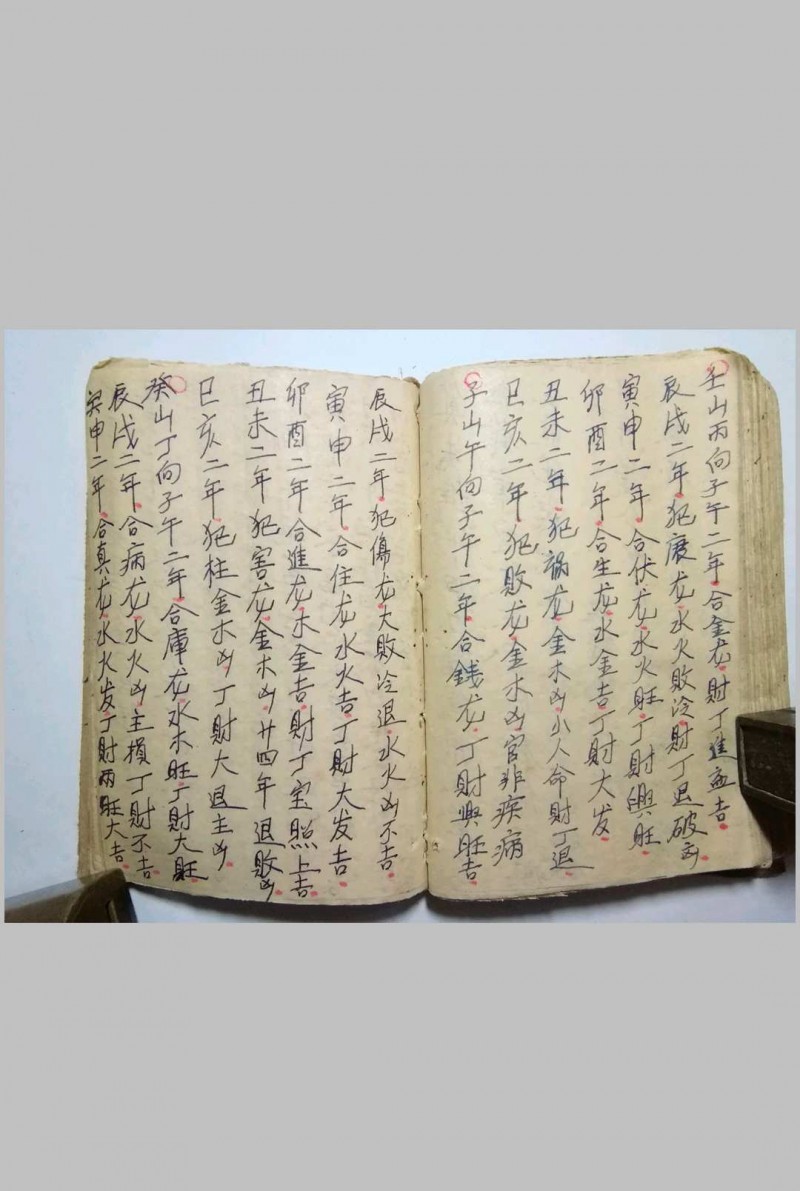 壬山丙向子午二年合金龙財丁進益吉
辰戌二年犯廉龙水火敗冷財丁退破凶
寅申二年合伏龙水火旺丁財興旺
卯酉二年合生龙水金吉丁財大发
丑未二年犯禍龙金木凶小人命財丁退
巳亥二年犯敗龙金木凶官非疾病
子山午向子午二年合錢龙丁財興旺吉
辰戌二年犯傷龙大敗冷退水火凶不吉
寅申二年合住龙水火吉丁財大发吉
卯酉二年合進龙木金吉財丁宝照上吉
丑未二年犯害龙金木凶廿四年退敗凶
巳亥二年犯柱金木凶丁財大退主凶
癸山丁向子午二年合庫龙水木旺丁財大旺
辰戌二年合病龙水火凶主損丁財不吉
寅申二年合真龙水火发丁財兩旺大吉